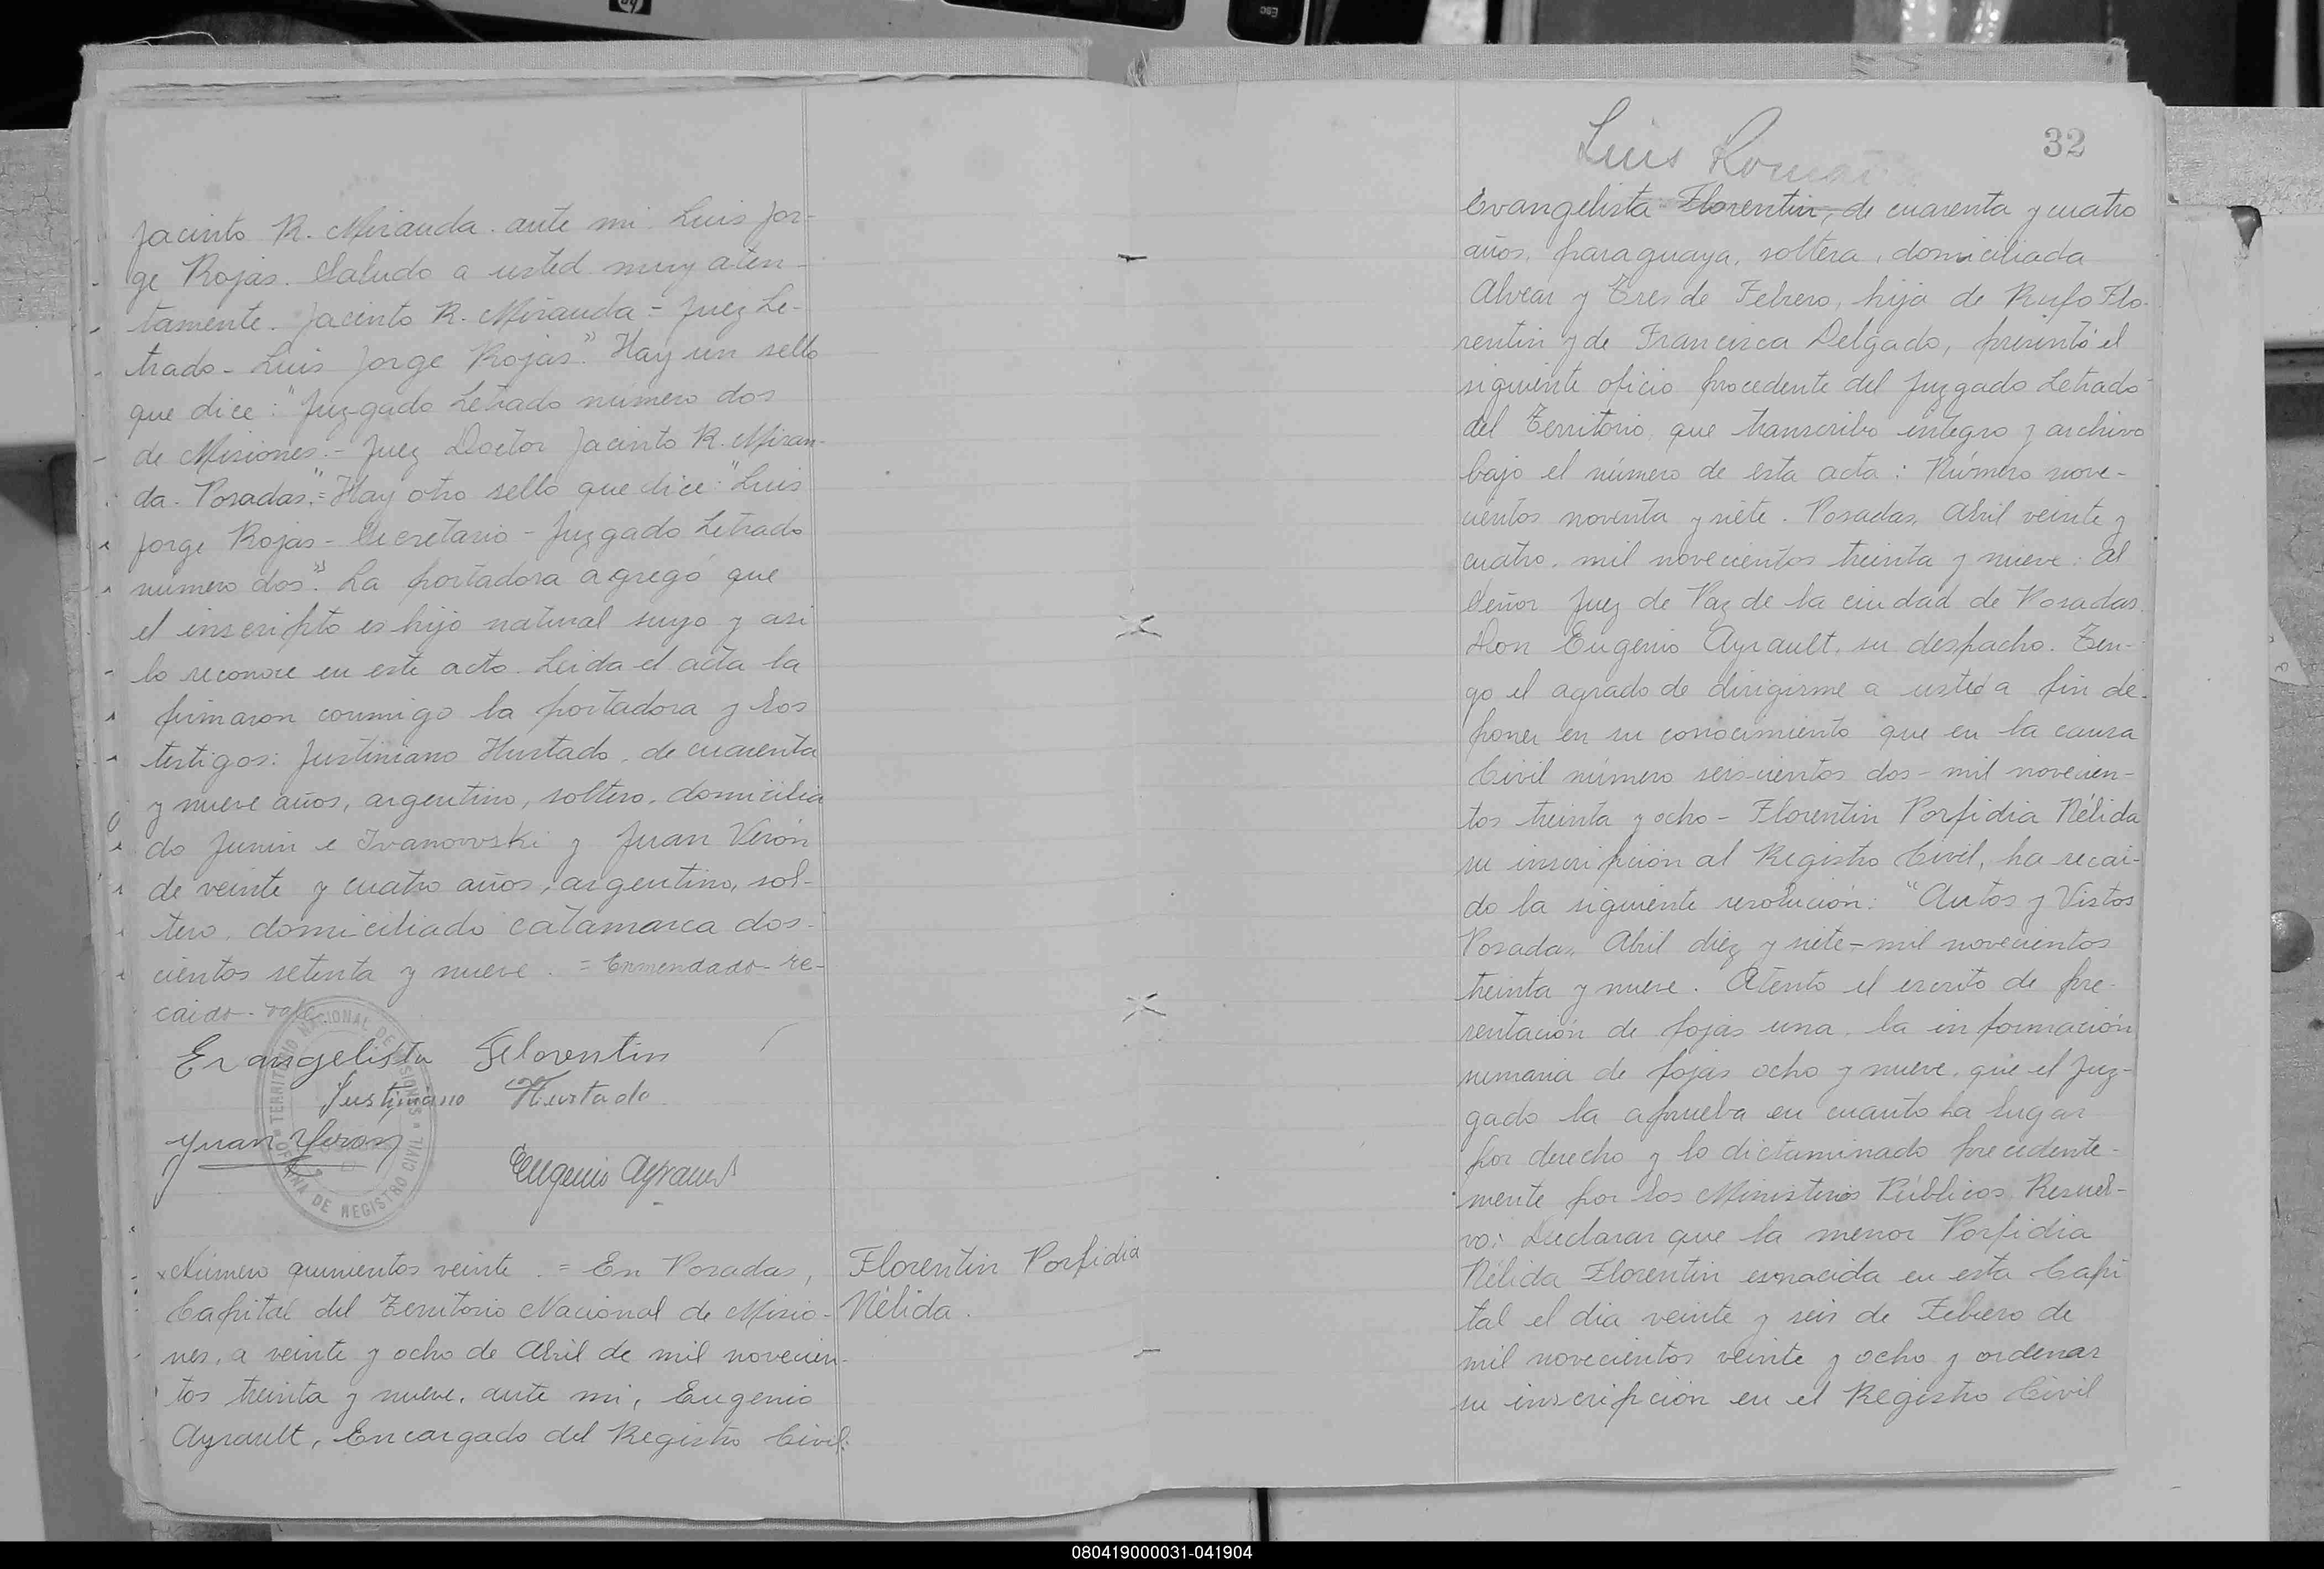 Jacinto R. Miranda. ante mi. Luis Jor-
ge Rojas. Saludo a usted muy aten-
tamente. Jacinto R. Miranda = Juez Le-
trado - Luis Jorge Rojas". Hay un sello
que dice: "Juzgado Letrado número dos
de Misiones. - Juez Doctor Jacinto R. Miran-
da. Posadas". = Hay otro sello que dice: "Luis
Jorge Rojas - Secretario - Juzgado Letrado
número dos". La portadora agregó que
el inscripto es hijo natural suyo y asi
lo reconoce en este acto. Leida el acta la
firmaron conmigo la portadora y los
testigos: Justiniano Hurtado, de cuarenta
y nueve años, argentino, soltero, domicilia
do Junin e Ivanowski y Juan Verón
de veinte y cuatro años, argentino, sol-
tero, domiciliado Catamarca dos-
cientos setenta y nueve. = Enmendado - re-
caido - vale
Evangelista Florentin
Justiniano Hurtado
Juan Veron
Eugenio Ayrault
TERRITORIO NACIONAL DE MISIONES
OFICINA DE REGISTRO CIVIL
Número quinientos veinte. = En Posadas,
Capital del Territorio Nacional de Misio-
nes, a veinte y ocho de Abril de mil novecien-
tos treinta y nueve, ante mi, Eugenio
Ayrault, Encargado del Registro Civil:
Florentin Porfidia
Nélida.
32
Luis Roman
Evangelista Florentin, de cuarenta y cuatro
años, paraguaya, soltera, domiciliada
Alvear y Tres de Febrero, hija de Rufo Flo-
rentin y de Francisca Delgado, presentó el
siguiente oficio procedente del Juzgado Letrado
del Territorio, que transcribo integro y archivo
bajo el número de esta acta: Número nove-
cientos noventa y siete. Posadas, Abril veinte y
cuatro, mil novecientos treinta y nueve: Al
Señor Juez de Paz de la ciudad de Posadas.
Don Eugenio Ayrault, su despacho. Ten-
go el agrado de dirigirme a usted a fin de
poner en su conocimiento que en la causa
Civil número seiscientos dos - mil novecien-
tos treinta y ocho - Florentin Porfidia Nélida
su inscripción al Registro Civil, ha recai-
do la siguiente resolución: "Autos y Vistos
Posadas, Abril diez y siete - mil novecientos
treinta y nueve. Atento el escrito de pre-
sentación de fojas una, la información
sumaria de fojas ocho y nueve, que el Juz-
gado la aprueba en cuanto ha lugar
por derecho y lo dictaminado precedente-
mente por los Ministerios Públicos, Resuel-
vo: Declarar que la menor Porfidia
Nélida Florentin es nacida en esta Capi
tal el dia veinte y seis de Febrero de
mil novecientos veinte y ocho y ordenar
su inscripción en el Registro Civil
080419000031-041904